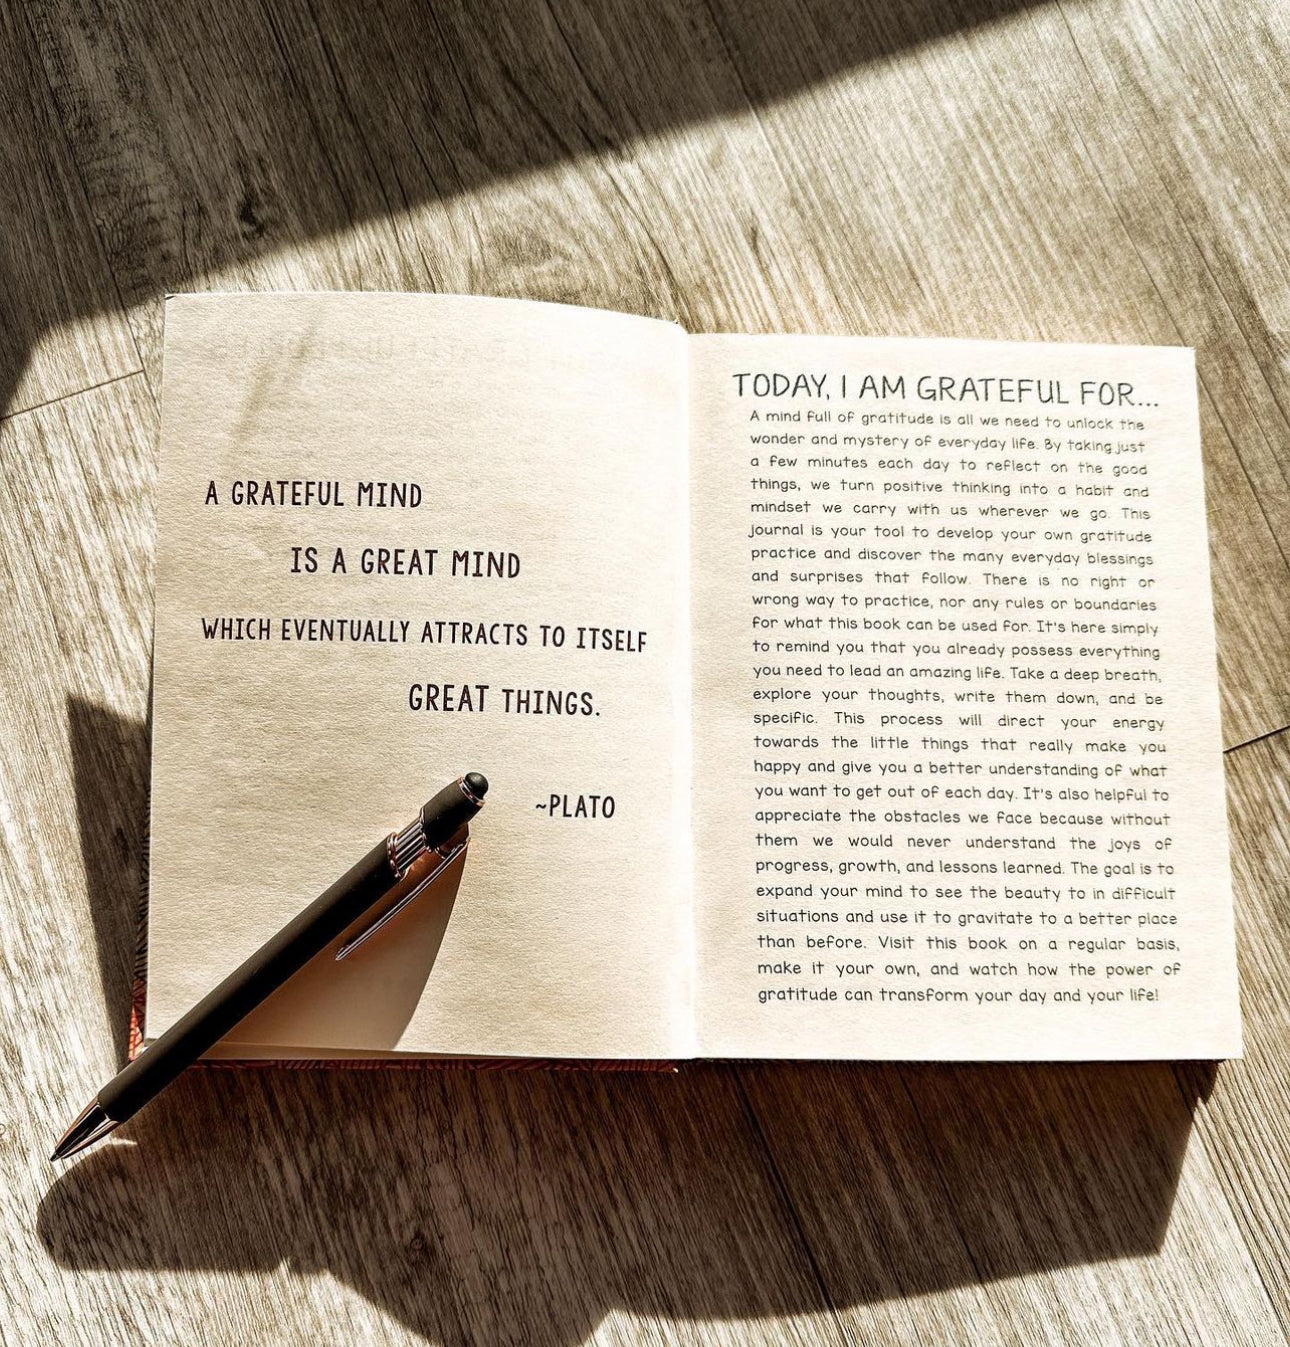 A GRATEFUL MIND
IS A GREAT MIND
WHICH EVENTUALLY ATTRACTS TO ITSELF
GREAT THINGS.
~PLATO
TODAY, I AM GRATEFUL FOR...
A mind full of gratitude is all we need to unlock the
wonder and mystery of everyday life. By taking just
a few minutes each day to reflect on the good
things, we turn positive thinking into a habit and
mindset we carry with us wherever we go. This
journal is your tool to develop your own gratitude
practice and discover the many everyday blessings
and surprises that follow. There is no right or
wrong way to practice, nor any rules or boundaries
for what this book can be used for. It's here simply
to remind you that you already possess everything
you need to lead an amazing life. Take a deep breath,
explore your thoughts, write them down, and be
specific. This process will direct your energy
towards the little things that really make you
happy and give you a better understanding of what
you want to get out of each day. It's also helpful to
appreciate the obstacles we face because without
them we would never understand the joys of
progress, growth, and lessons learned. The goal is to
expand your mind to see the beauty to in difficult
situations and use it to gravitate to a better place
than before. Visit this book on a regular basis,
make it your own, and watch how the power of
gratitude can transform your day and your life!